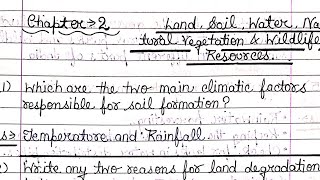 Chapter → 2
Land, Soil, Water, Na
tural Vegetation & Wildlife
Resources.
1) Which are the two main climatic factors
responsible for soil formation?
s → Temperature and Rainfall.
2) Write any two reasons for land degradation